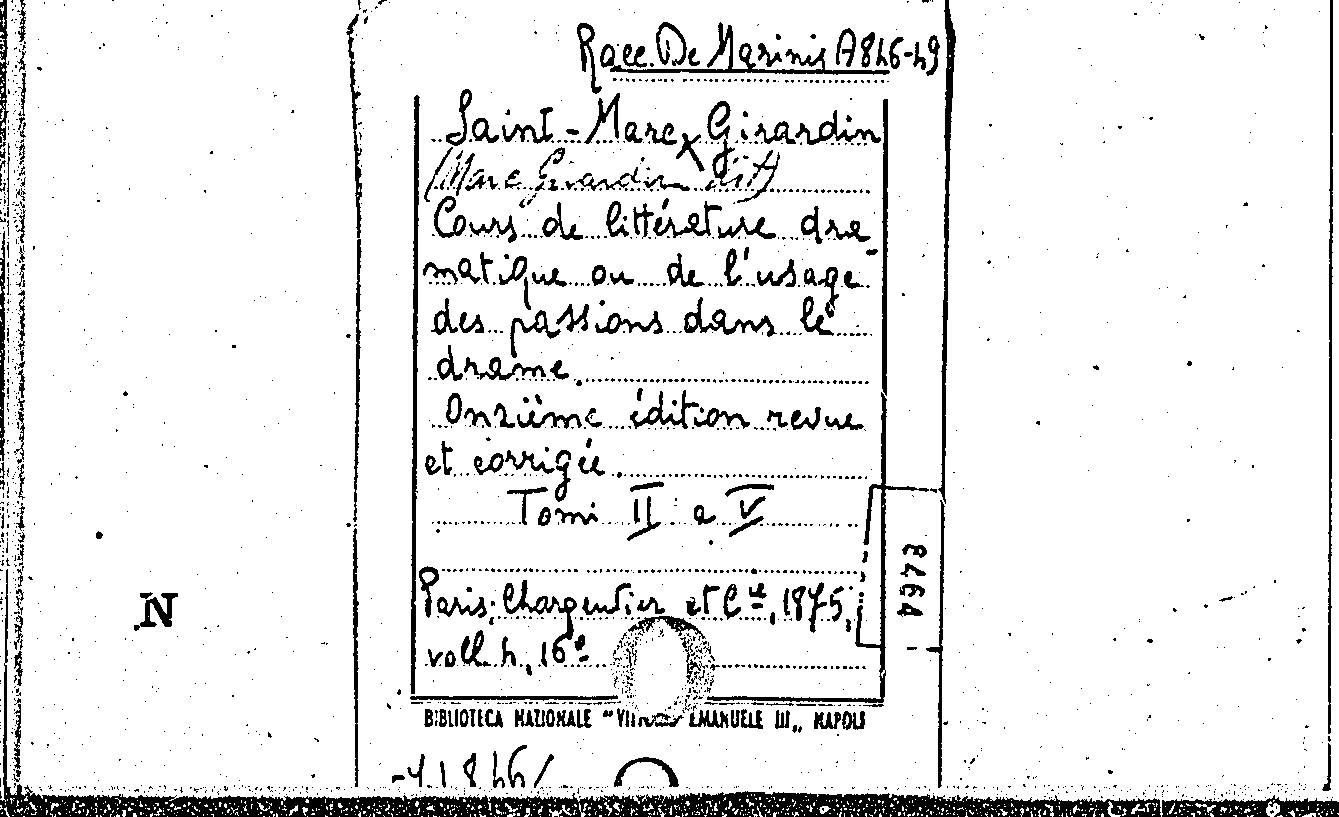 Racc. De Marinis A846-49
Saint-Marc Girardin
(Marc Girardin dit)
Cours de littérature dra-
matique ou de l'usage
des passions dans le
drame.
Onzième édition revue
et corrigée.
Tomi II a V
Paris, Charpentier et Cie, 1875,
voll. 4, 16º
8464
N
BIBLIOTECA NAZIONALE "VITTORIO EMANUELE III„ NAPOLI